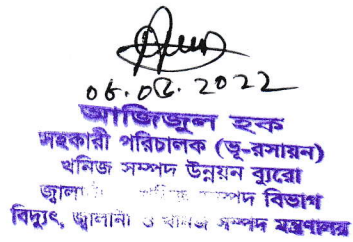 06.06.2022
আজিজুল হক
সহকারী পরিচালক (ভূ-রসায়ন)
খনিজ সম্পদ উন্নয়ন ব্যুরো
জ্বালা সম্পদ বিভাগ
বিদ্যুৎ, জ্বালানী ও খনিজ সম্পদ মন্ত্রণালয়